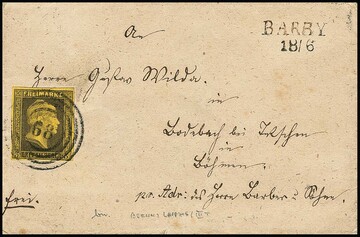 BARBY
18/6
An
Herrn Gustav Wilda.
in
Bodebach bei Tetschen
in
Böhmen.
FREIMARKE
68
frei.
pr. Adr: des Herrn Barber & Sohn.